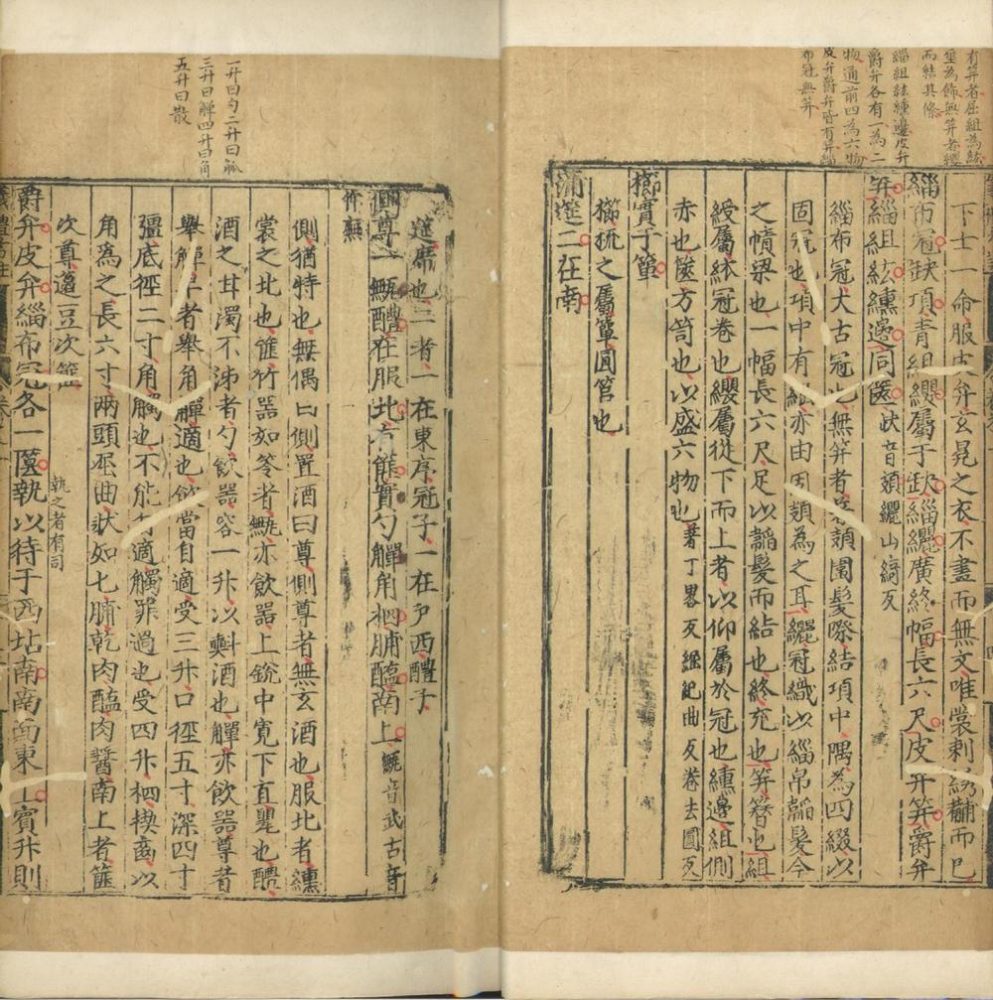 有筓者屈組為紘
垂為飾無筓者纓
而結其絛
緇組紘纁邊皮弁
爵弁各有一為二
物通前四為六物
皮弁爵弁皆有筓緇
布冠無筓
下士一命服皮弁玄冕之衣不畫而無文唯裳刺紼黻而巳
緇布冠缺項青組纓屬于缺緇纚廣終幅長六尺皮弁筓爵弁
筓緇組紘纁邊同篋 音頍纚山綺反
緇布冠大古冠也無筓者著頍圍髮際結項中隅為四綴以
固冠也項中有亦由固頍為之耳纚冠織以緇帛韜髮今
之幘梁也一幅長六尺足以韜髮而結也終充也筓簪也組
綬屬紘冠卷也纓屬從下而上者以仰屬於冠也纁邊組側
赤也篋方笥也以盛六物也 著丁畧反 紀曲反卷去圓反
櫛實于簞
櫛梳之屬簞圓笥也
蒲筵二在南
一升曰勺二升曰觚
三升曰觶四升曰角
五升曰散
筵席也二者一在東序冠子一在戶西醴子
側尊一甒醴在服北有篚實勺觶角柶脯醢南上 甒音武古音
作廡
側猶特也無偶曰側置酒曰尊側尊者無玄酒也服北者纁
裳之北也篚竹器如笭者甒亦飲器上銳中寬下直
酒之甘濁不泲者勺飲器容一升以㪺酒也觶亦飲器尊者
舉觶者舉角觶適也飲當自適受三升口徑五寸深四寸
彊底徑二寸角觸也不能適觸罪過也受四升柶楔齒以
角為之長六寸兩頭屈曲狀如匕脯乾肉醢肉醬南上者篚
次尊邉豆次篚
爵弁皮弁緇布冠各一匴執以待于西坫南南面東上賓升則
執之者有司